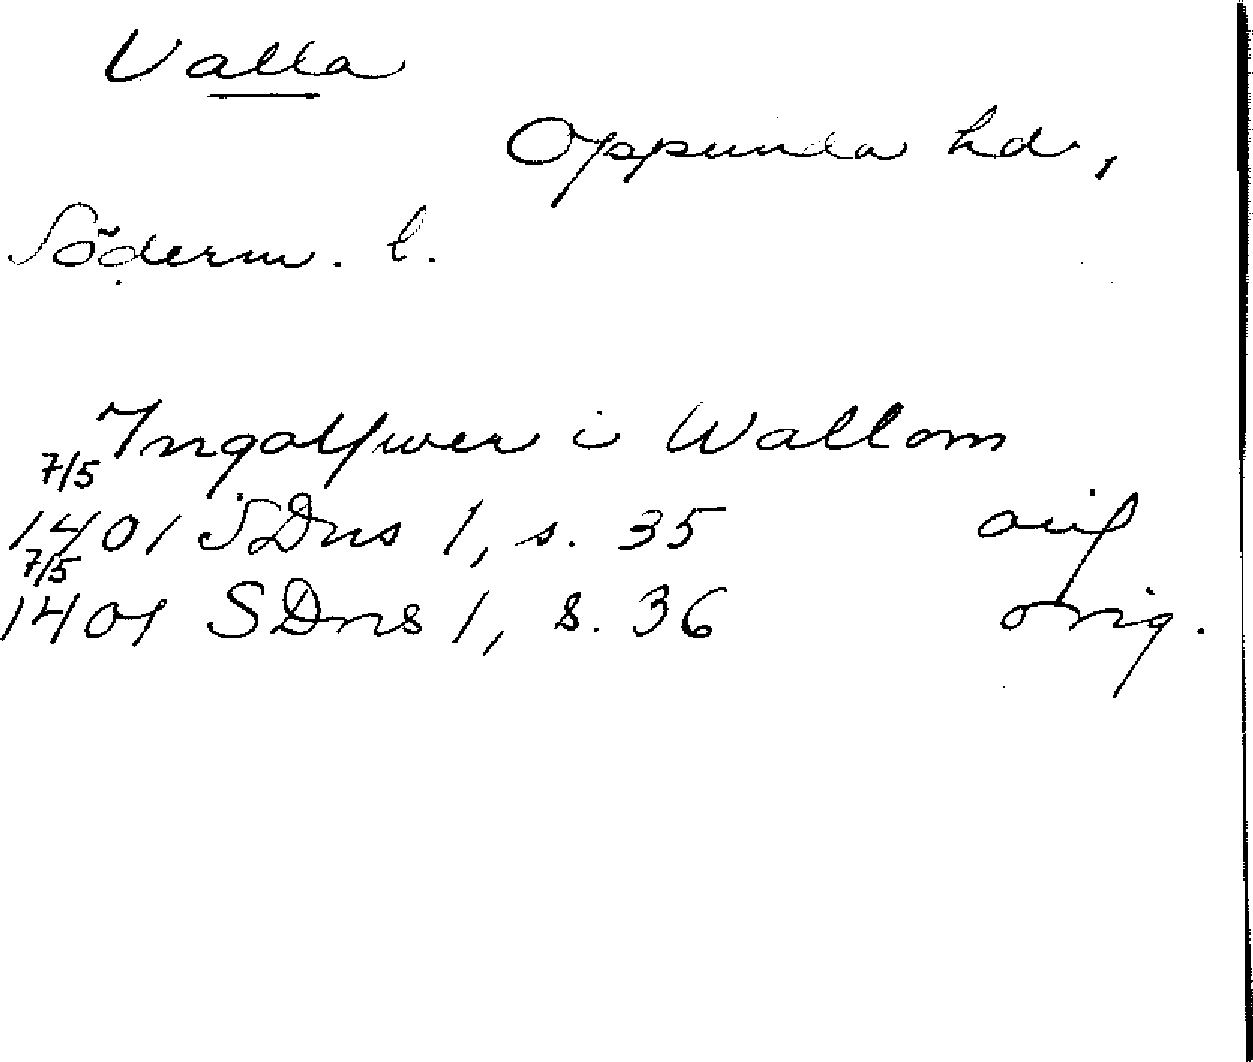 Valla
Oppunda hd,
Söderm. l.
Ingolfwer i Wallom
7/5
1401 SDns 1, s. 35 orig
7/5
1401 SDns 1, s. 36 orig.